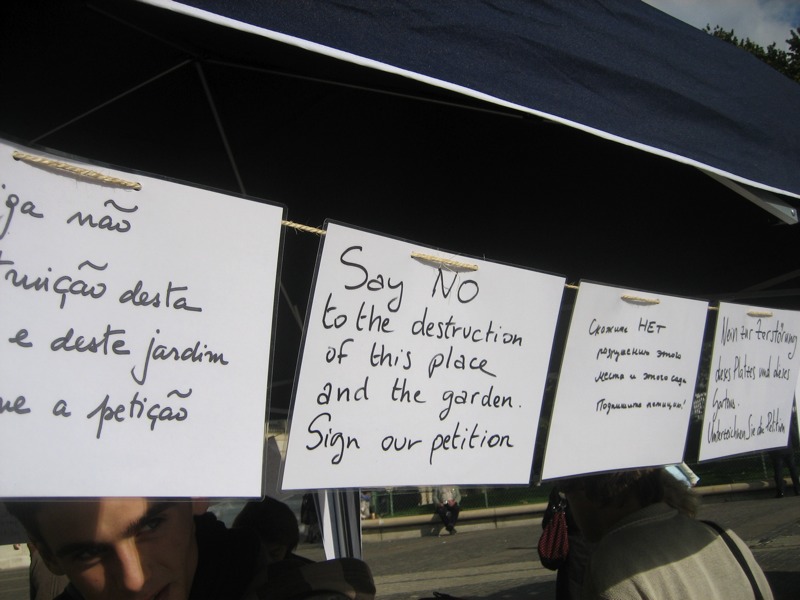 iga não
truição desta
e deste jardim
ne a petição
Say NO
to the destruction
of this place
and the garden.
Sign our petition
Скажите НЕТ
разрушению этого
места и этого сада
Подпишите петицию!
Nein zur Zerstörung
dieses Platzes und dieses
Gartens.
Unterzeichnen Sie die Petition